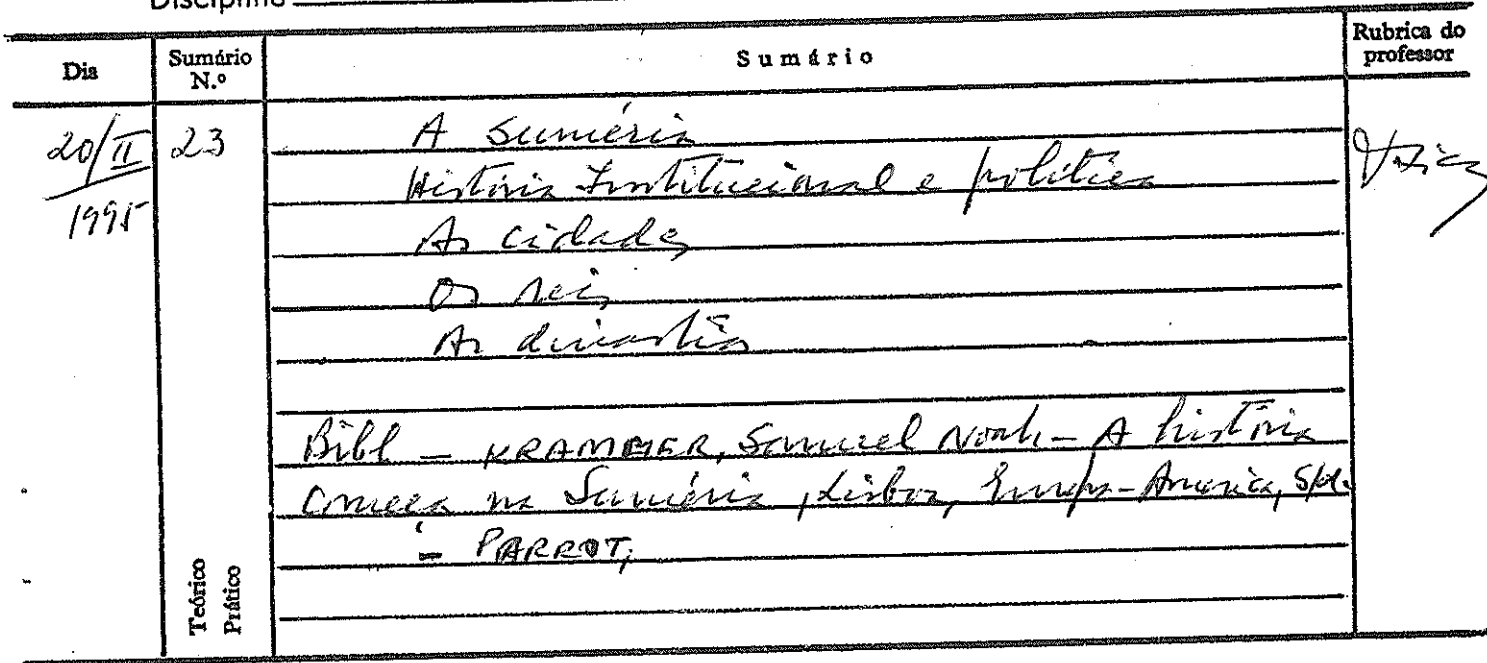 Disciplina
Dia
Sumário N.º
Sumário
Rubrica do professor
20/II
1995
23
A Suméria
História Institucional e política
As cidades
Os reis
As dinastias
Bibl - KRAMMER, Samuel Noah - A história
começa na Suméria, Lisboa, Europa-América, s/d.
- PARROT,
Teórico
Prático